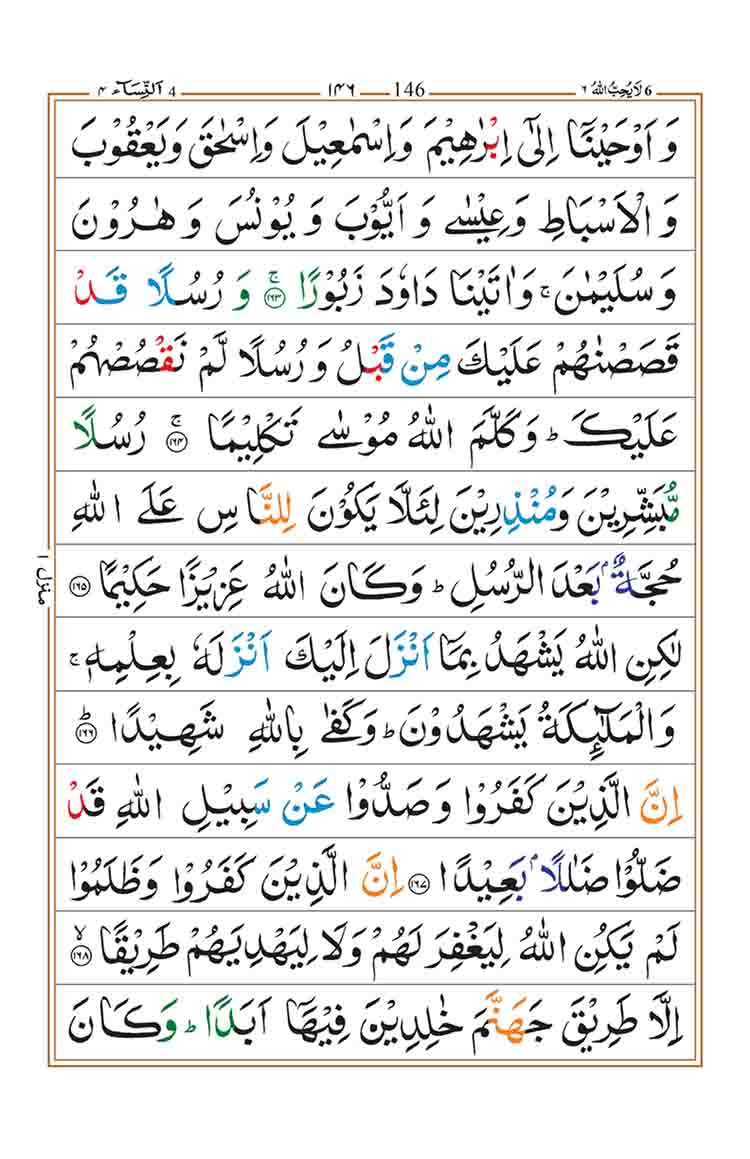 6 لَا يُحِبُّ اللّٰهُ ٦ 146 ١٤٦ 4 اَلنِّسَآء ٤
وَ اَوْحَيْنَاۤ اِلٰٓى اِبْرٰهِيْمَ وَاِسْمٰعِيْلَ وَاِسْحٰقَ وَيَعْقُوْبَ
وَ الْاَسْبَاطِ وَعِيْسٰى وَ اَيُّوْبَ وَ يُوْنُسَ وَ هٰرُوْنَ
وَ سُلَيْمٰنَ ۚ وَاٰتَيْنَا دَاوٗدَ زَبُوْرًا ۚ‏﴿۱۶۳﴾ وَ رُسُلًا قَدْ
قَصَصْنٰهُمْ عَلَيْكَ مِنْ قَبْلُ وَ رُسُلًا لَّمْ نَقْصُصْهُمْ
عَلَيْكَ ؕ وَ كَلَّمَ اللّٰهُ مُوْسٰى تَكْلِيْمًا ۚ‏﴿۱۶۴﴾ رُسُلًا
مُّبَشِّرِيْنَ وَمُنْذِرِيْنَ لِئَلَّا يَكُوْنَ لِلنَّاسِ عَلَى اللّٰهِ
حُجَّةٌۢ بَعْدَ الرُّسُلِ ؕ وَكَانَ اللّٰهُ عَزِيْزًا حَكِيْمًا ﴿۱۶۵﴾
لٰكِنِ اللّٰهُ يَشْهَدُ بِمَاۤ اَنْزَلَ اِلَيْكَ اَنْزَلَهٗ بِعِلْمِهٖ ۚ
وَالْمَلٰٓئِكَةُ يَشْهَدُوْنَ ؕ وَكَفٰى بِاللّٰهِ شَهِيْدًا ؕ‏﴿۱۶۶﴾
اِنَّ الَّذِيْنَ كَفَرُوْا وَ صَدُّوْا عَنْ سَبِيْلِ اللّٰهِ قَدْ
ضَلُّوْا ضَلٰلًاۢ بَعِيْدًا ﴿۱۶۷﴾ اِنَّ الَّذِيْنَ كَفَرُوْا وَظَلَمُوْا
لَمْ يَكُنِ اللّٰهُ لِيَغْفِرَ لَهُمْ وَلَا لِيَهْدِيَهُمْ طَرِيْقًا ۙ‏﴿۱۶۸﴾
اِلَّا طَرِيْقَ جَهَنَّمَ خٰلِدِيْنَ فِيْهَاۤ اَبَدًا ؕ وَكَانَ
منزل ١